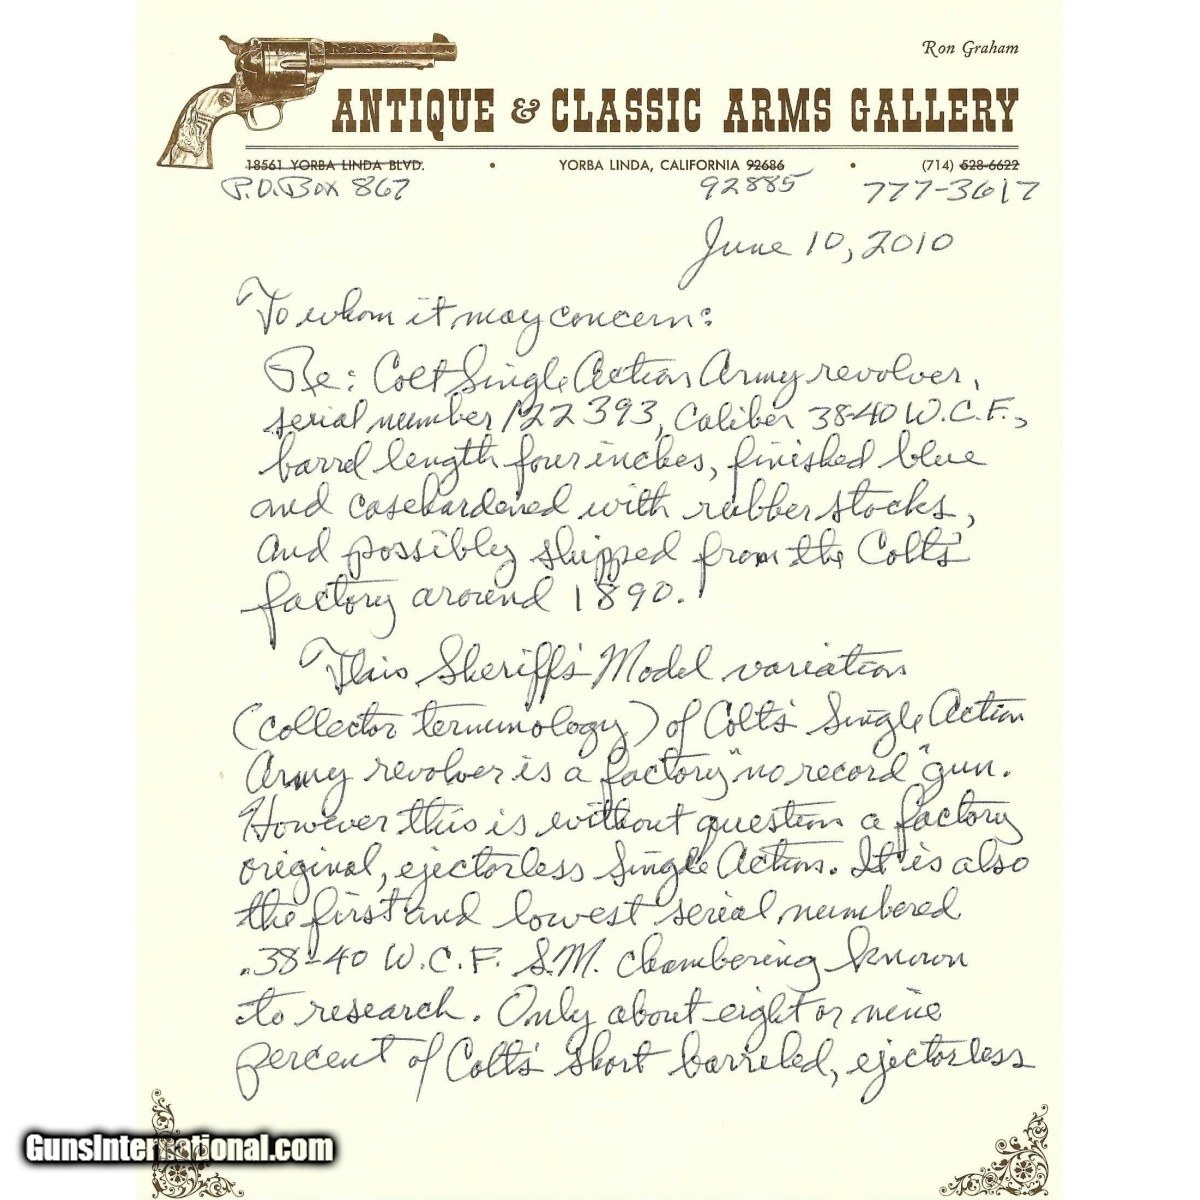 Ron Graham
ANTIQUE & CLASSIC ARMS GALLERY
18561 YORBA LINDA BLVD. • YORBA LINDA, CALIFORNIA 92686 • (714) 528-6622
P.O. Box 867 92885 777-3617
June 10, 2010
To whom it may concern:
Re: Colt Single Action Army revolver,
serial number 122393, Caliber 38-40 W.C.F.,
barrel length four inches, finished blue
and casehardened with rubber stocks,
and possibly shipped from the Colts'
factory around 1890.
This Sheriff's Model variation
(collector terminology) of Colt's Single Action
Army revolver is a factory "no record" gun.
However this is without question a factory
original, ejectorless Single Action. It is also
the first and lowest serial numbered
.38-40 W.C.F. S.M. chambering known
to research. Only about eight or nine
percent of Colt's short barreled, ejectorless
GunsInternational.com